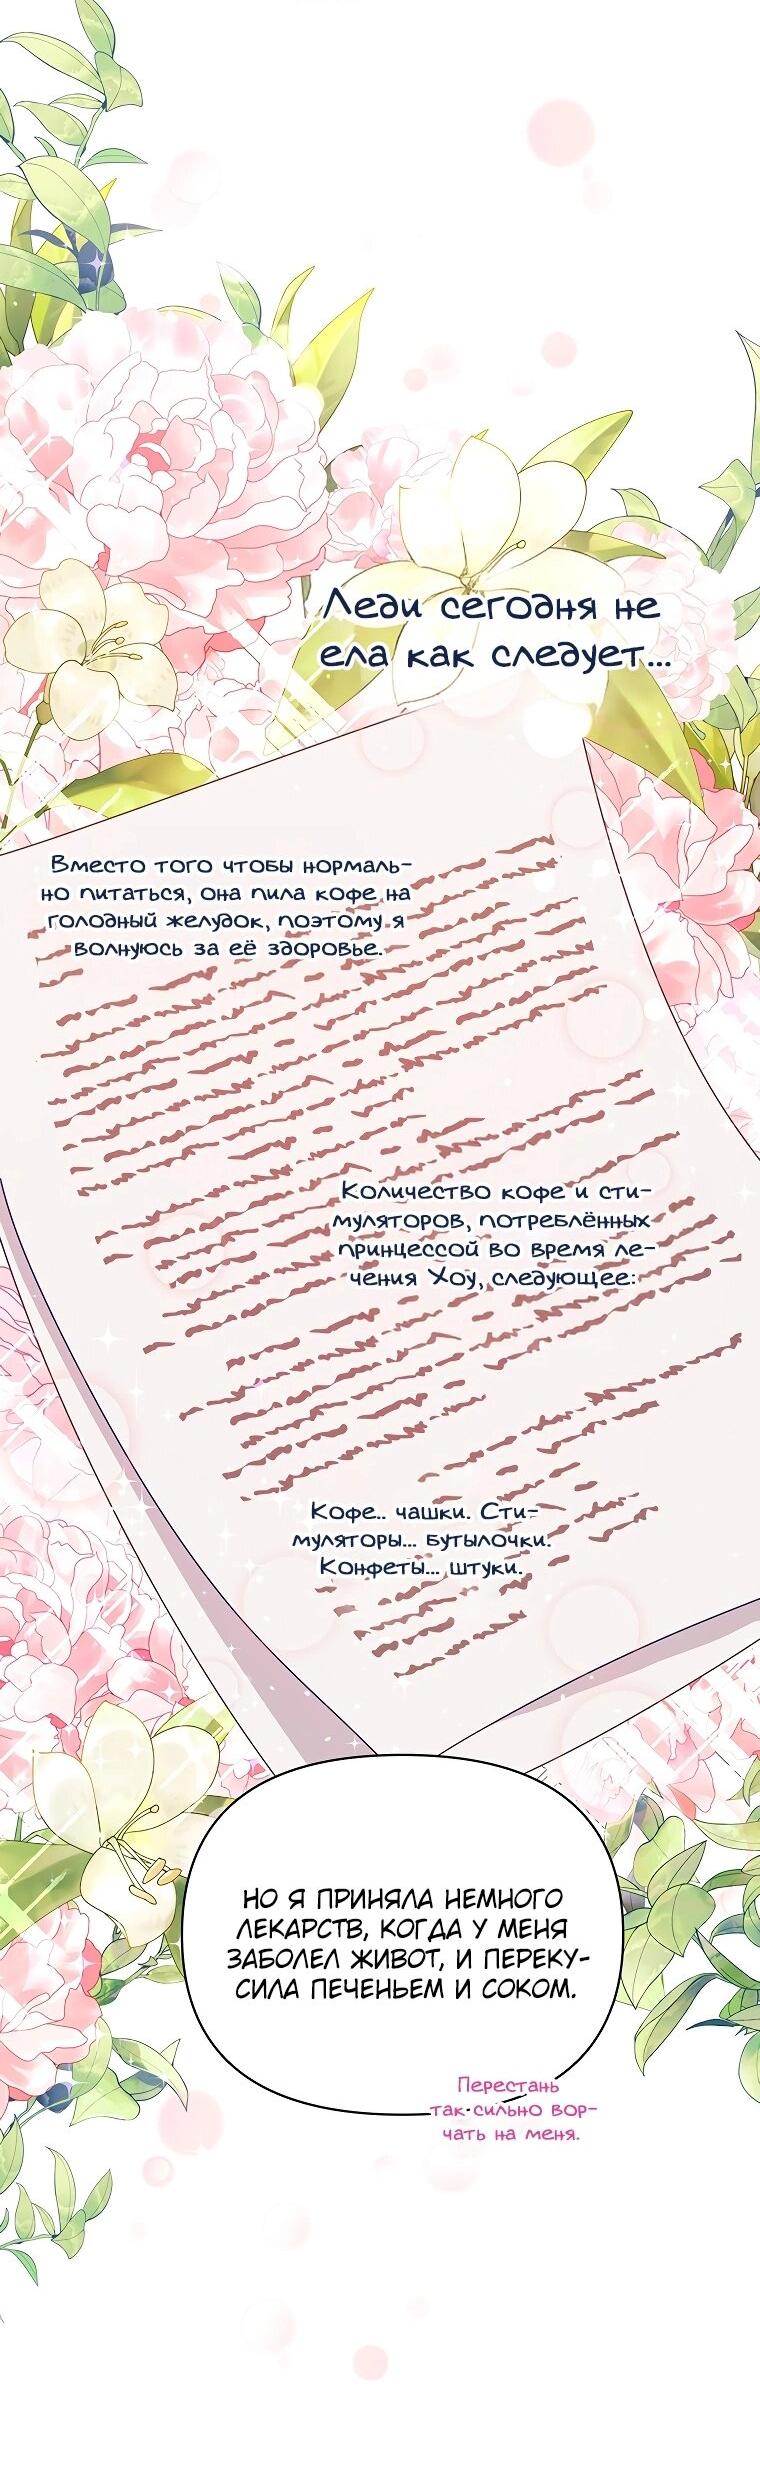 Леди сегодня не
ела как следует...
Вместо того чтобы нормаль-
но питаться, она пила кофе на
голодный желудок, поэтому я
волнуюсь за её здоровье.
Количество кофе и сти-
муляторов, потреблённых
принцессой во время ле-
чения Хоу, следующее:
Кофе.. чашки. Сти-
муляторы... бутылочки.
Конфеты... штуки.
НО Я ПРИНЯЛА НЕМНОГО
ЛЕКАРСТВ, КОГДА У МЕНЯ
ЗАБОЛЕЛ ЖИВОТ, И ПЕРЕКУ-
СИЛА ПЕЧЕНЬЕМ И СОКОМ.
Перестань
так сильно вор-
чать на меня.